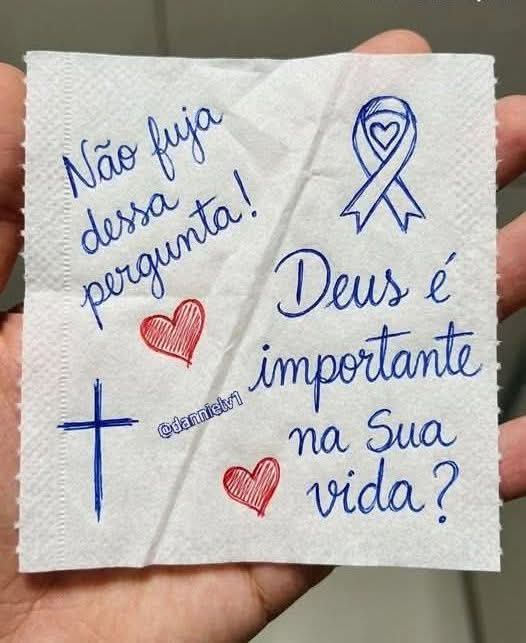 Não fuja
dessa
pergunta!
@dannielv1
Deus é
importante
na Sua
vida?